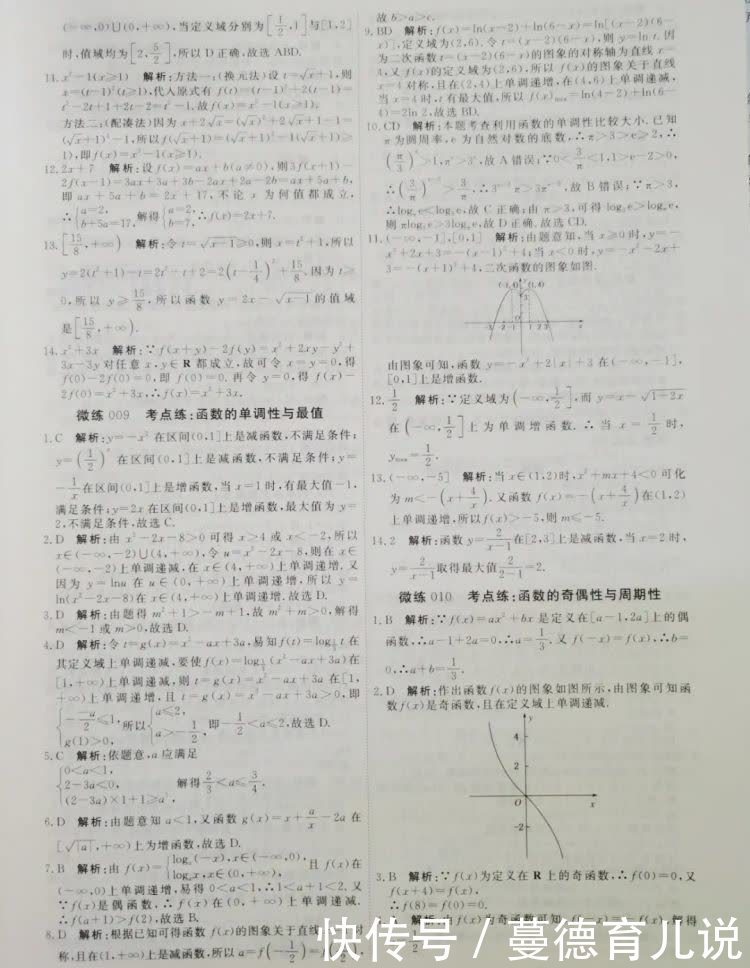 (-∞,0)∪(0,+∞),当定义域分别为[1/2,1]与[1,2]
时,值域均为[2,5/2],所以D正确,故选ABD.
11.x²-1(x≥1) 解析:方法一:(换元法)设t=√x+1,则
x=(t-1)²(t≥1),代入原式有f(t)=(t-1)²+2(t-1)=
t²-2t+1+2t-2=t²-1,故f(x)=x²-1(x≥1).
方法二:(配凑法)因为x+2√x=(√x)²+2√x+1-1=
(√x+1)²-1,所以f(√x+1)=(√x+1)²-1(√x+1≥
1),即f(x)=x²-1(x≥1).
12.2x+7 解析:设f(x)=ax+b(a≠0),则3f(x+1)-
2f(x-1)=3ax+3a+3b-2ax+2a-2b=ax+5a+b,
即ax+5a+b=2x+17,不论x为何值都成立,
∴{a=2, b+5a=17, 解得{a=2, b=7, ∴f(x)=2x+7.
13.[15/8,+∞) 解析:令t=√x-1≥0,则x=t²+1,所以
y=2(t²+1)-t=2t²-t+2=2(t-1/4)²+15/8,因为t≥
0,所以y≥15/8,所以函数y=2x-√x-1的值域
是[15/8,+∞).
14.x²+3x 解析:∵f(x+y)-2f(y)=x²+2xy-y²+
3x-3y对任意x,y∈R都成立,故可令x=y=0,得
f(0)-2f(0)=0,即f(0)=0.再令y=0,得f(x)-
2f(0)=x²+3x,∴f(x)=x²+3x.
微练009 考点练:函数的单调性与最值
1.C 解析:y=-x²在区间(0,1]上是减函数,不满足条件;
y=(1/2)ˣ在区间(0,1]上是减函数,不满足条件;y=
-1/x在区间(0,1]上是增函数,当x=1时,有最大值-1,
满足条件;y=2x在区间(0,1]上是增函数,最大值为y=
2,不满足条件,故选C.
2.D 解析:由x²-2x-8>0可得x>4或x<-2,所以
x∈(-∞,-2)∪(4,+∞),令u=x²-2x-8,则在x∈
(-∞,-2)上单调递减,在x∈(4,+∞)上单调递增.又
因为y=lnu在u∈(0,+∞)上单调递增,所以y=
ln(x²-2x-8)在x∈(4,+∞)上单调递增.故选D.
3.D 解析:由题得m²+1>-m+1,故m²+m>0,解得
m<-1或m>0,故选D.
4.D 解析:令t=g(x)=x²-ax+3a,易知f(t)=log½t在
其定义域上单调递减,要使f(x)=log½(x²-ax+3a)在
[1,+∞)上单调递减,则t=g(x)=x²-ax+3a在[1,
+∞)上单调递增,且t=g(x)=x²-ax+3a>0,即
{-(-a)/2≤1, g(1)>0, 所以{a≤2, a>-1/2, 即-1/2<a≤2,故选D.
5.C 解析:依题意,a应满足
{0<a<1, 2-3a<0, (2-3a)×1+1≥a¹, 解得2/3<a≤3/4.
6.D 解析:由题意知a<1,又函数g(x)=x+a/x-2a在
[√|a|,+∞)上为增函数,故选D.
7.B 解析:由f(x)={logₐ(-x),x∈(-∞,0), logₐx,x∈(0,+∞), 且f(x)在
(-∞,0)上单调递增,易得0<a<1,∴1<a+1<2.又
∵f(x)是偶函数,∴f(x)在(0,+∞)上单调递减,
∴f(a+1)>f(2),故选B.
8.D 解析:根据已知可得函数f(x)的图象关于直线
称,且在(1,+∞)上是减函数,所以a=f(-1/2)=
故b>a>c.
9.BD 解析:f(x)=ln(x-2)+ln(6-x)=ln[(x-2)(6-
x)],定义域为(2,6).令t=(x-2)(6-x),则y=lnt.因
为二次函数t=(x-2)(6-x)的图象的对称轴为直线x=
4,又f(x)的定义域为(2,6),所以f(x)的图象关于直线
x=4对称,且在(2,4)上单调递增,在(4,6)上单调递减,
当x=4时,t有最大值,所以f(x)max=ln(4-2)+ln(6-
4)=2ln 2,故选BD.
10.CD 解析:本题考查利用函数的单调性比较大小.已知
π为圆周率,e为自然对数的底数,∴π>3>e≥2,∴
(π/3)ᵉ>1,πᵉ>3ᵉ,故A错误;∵0<3/π<1,1>e-2>0,
∴(3/π)ᵉ⁻²>3/π,∴3ᵉ⁻²π>3πᵉ⁻²,故B错误;∵π>3,
∴log_πe<log₃e,故C正确;由π>3,可得log₃e>log_πe,
则πlog₃e>3log_πe,故D正确.故选CD.
11.(-∞,-1],[0,1] 解析:由题意知,当x≥0时,y=-
x²+2x+3=-(x-1)²+4;当x<0时,y=-x²-2x+
3=-(x+1)²+4,二次函数的图象如图.
(-1,4) (1,4)
-3 -2 -1 1 2 3
由图象可知,函数y=-x²+2|x|+3在(-∞,-1],
[0,1]上是增函数.
12.1/2 解析:∵定义域为(-∞,1/2],而y=x-√1-2x
在(-∞,1/2]上为单调增函数,∴当x=1/2时,
ymax=1/2.
13.(-∞,-5] 解析:当x∈(1,2)时,x²+mx+4<0可化
为m<-(x+4/x).又函数f(x)=-(x+4/x)在(1,2)
上单调递增,所以f(x)>-5,则m≤-5.
14.2 解析:函数y=2/(x-1)在[2,3]上是减函数,当x=2时,
y=2/(x-1)取得最大值2/(2-1)=2.
微练010 考点练:函数的奇偶性与周期性
1.B 解析:∵f(x)=ax²+bx是定义在[a-1,2a]上的偶
函数,∴a-1+2a=0,∴a=1/3.又f(-x)=f(x),∴b=
0,∴a+b=1/3.
2.D 解析:作出函数f(x)的图象如图所示,由图象可知函
数f(x)是奇函数,且在定义域上单调递减.
y
4
2
O x
-2
3.B 解析:∵f(x)为定义在R上的奇函数,∴f(0)=0,又
f(x+4)=f(x),
∴f(8)=f(0)=0.
解析:由f(x)为奇函数可知 解得
快传号 / 蔓德育儿说